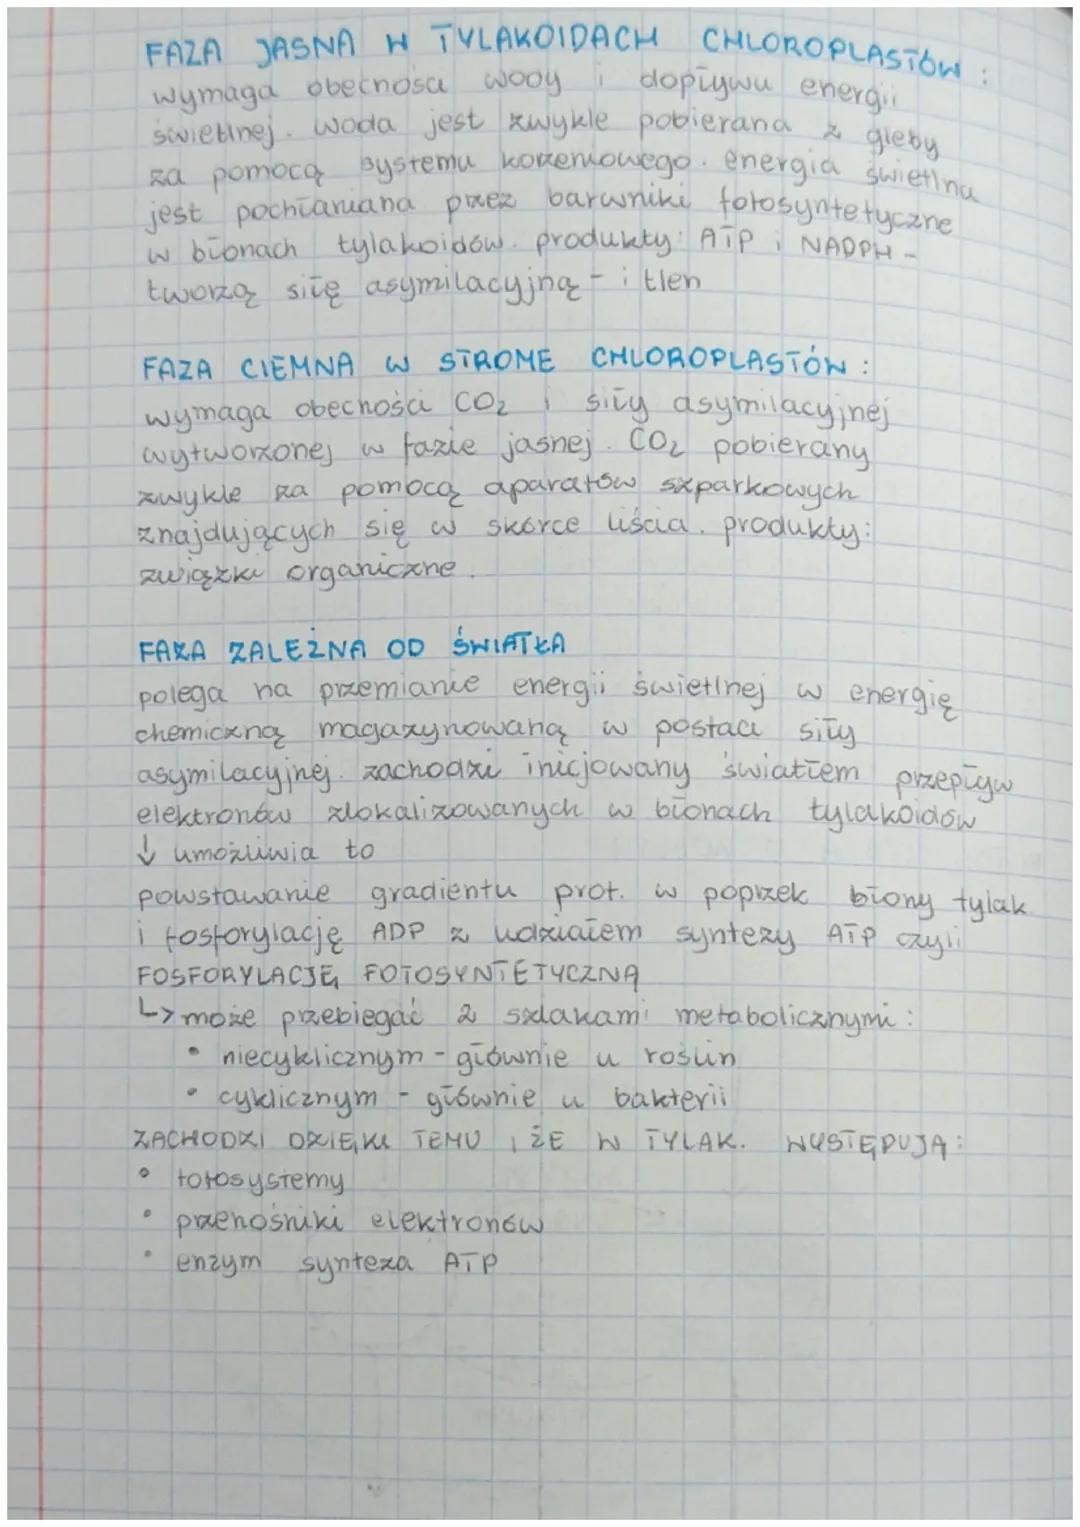 FAZA JASNA W TYLAKOIDACH CHLOROPLASTÓW :
wymaga obecności wody i dopływu energii
świetlnej. woda jest zwykle pobierana z gleby
za pomocą systemu korzeniowego. energia świetlna
jest pochłaniana przez barwniki fotosyntetyczne
w błonach tylakoidów. produkty: ATP i NADPH -
tworzą siłę asymilacyjną - i tlen
FAZA CIEMNA W STROMIE CHLOROPLASTÓW :
wymaga obecności CO₂ i siły asymilacyjnej
wytworzonej w fazie jasnej. CO₂ pobierany
zwykle za pomocą aparatów szparkowych
znajdujących się w skórce liścia. produkty:
związki organiczne.
FAZA ZALEŻNA OD ŚWIATŁA
polega na przemianie energii świetlnej w energię
chemiczną magazynowaną w postaci siły
asymilacyjnej. zachodzi inicjowany światłem przepływ
elektronów zlokalizowanych w błonach tylakoidów
↓ umożliwia to
powstawanie gradientu prot. w poprzek błony tylak.
i fosforylację ADP z udziałem syntezy ATP czyli
FOSFORYLACJĘ FOTOSYNTETYCZNĄ
↳ może przebiegać 2 szlakami metabolicznymi :
• niecyklicznym - głównie u roślin
• cyklicznym - głównie u bakterii
ZACHODZI DZIĘKI TEMU , ŻE W TYLAK. WYSTĘPUJĄ :
• fotosystemy
• przenośniki elektronów
• enzym synteza ATP